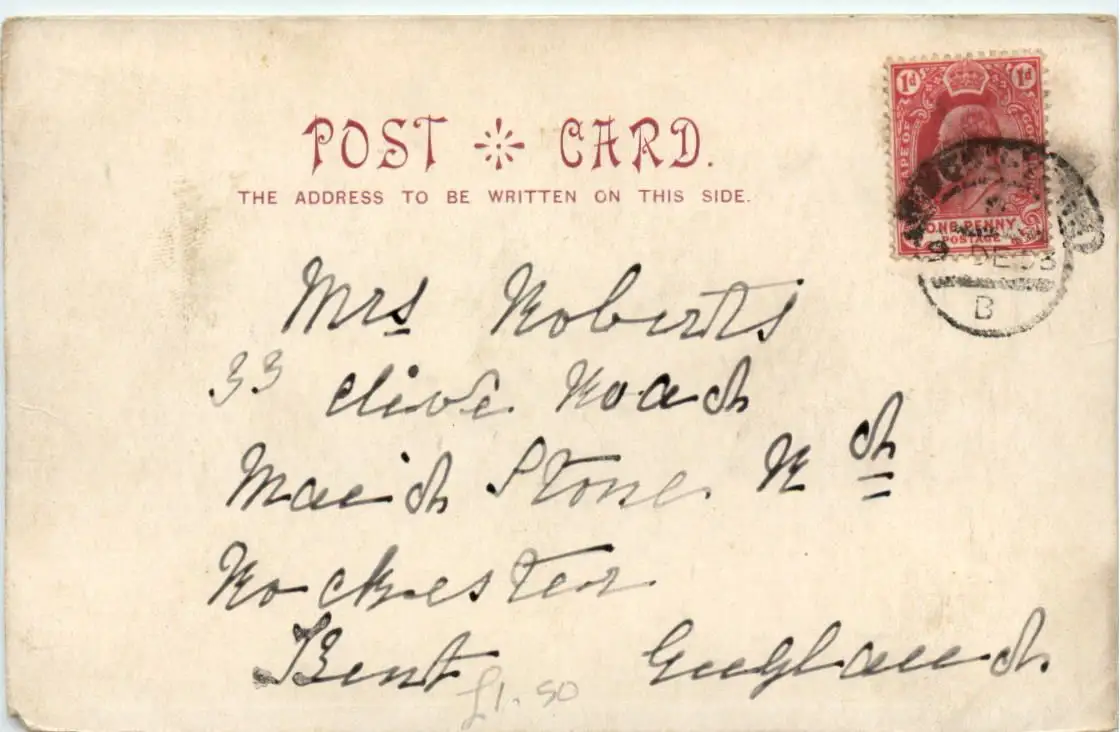 POST CARD.
THE ADDRESS TO BE WRITTEN ON THIS SIDE.
1d 1d
ONE PENNY
POSTAGE
DE 03
B
Mrs Roberts
33 Clive Road
Maid Stone Rd
Rochester
Kent England
£1.50